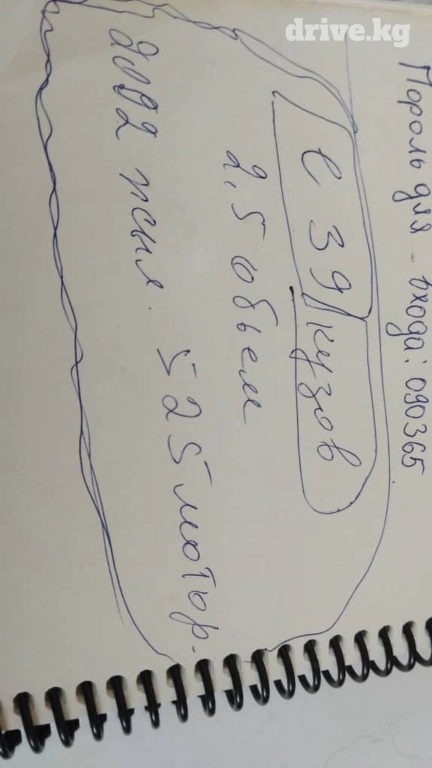 drive.kg
Пороль для - входа: 090365
е 39 кузов
2,5 обьем
2002 жыл. 525 мотор.